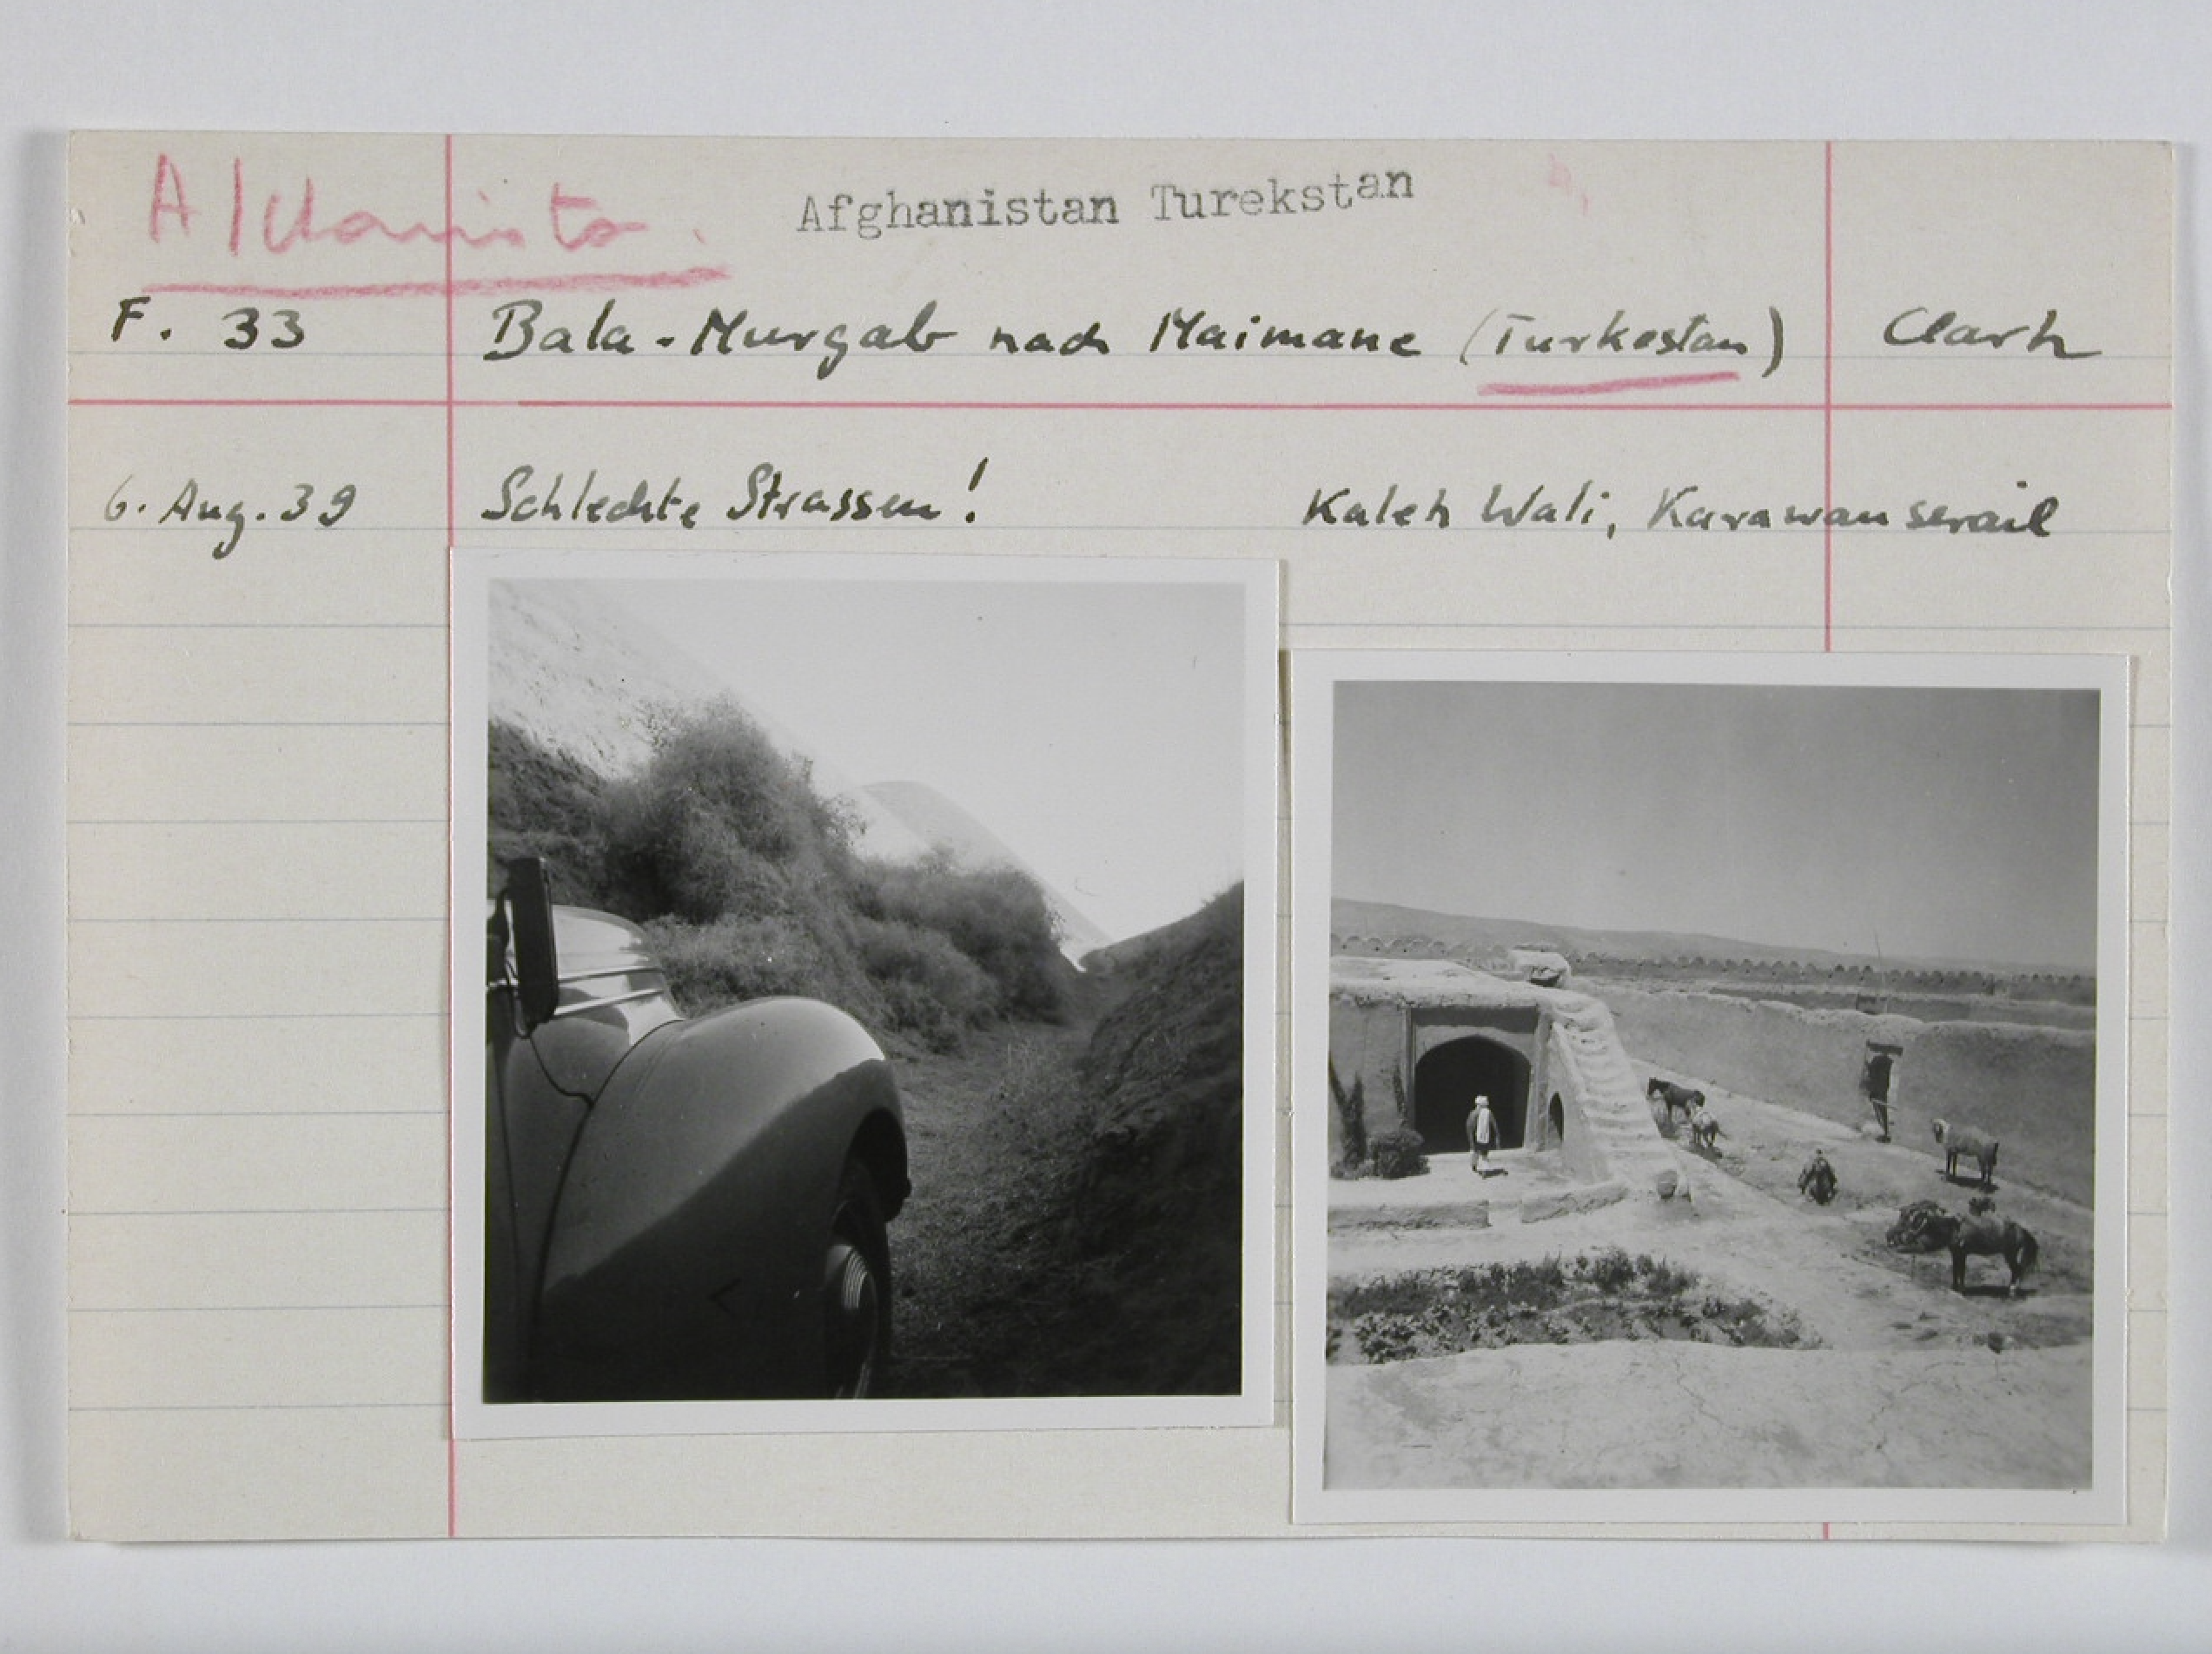 Afghanistan Turekstan
F. 33 Bala-Murgab nach Maimane (Turkestan) Clark
6. Aug. 39 Schlechte Strassen! Kaleh Wali, Karawanserail